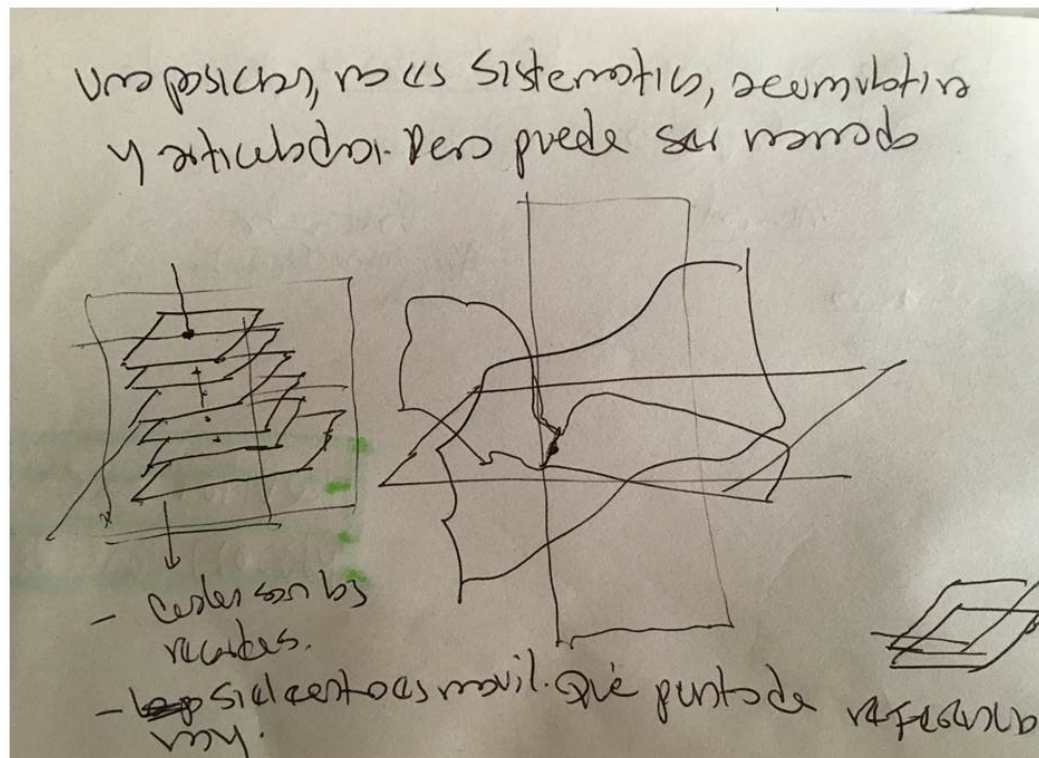 una posición, no es sistematica, acumulativa
y articulada. Pero puede ser narrada
- cuales son los
recortes.
- si el centro es movil. Qué punto de referencia
hay.